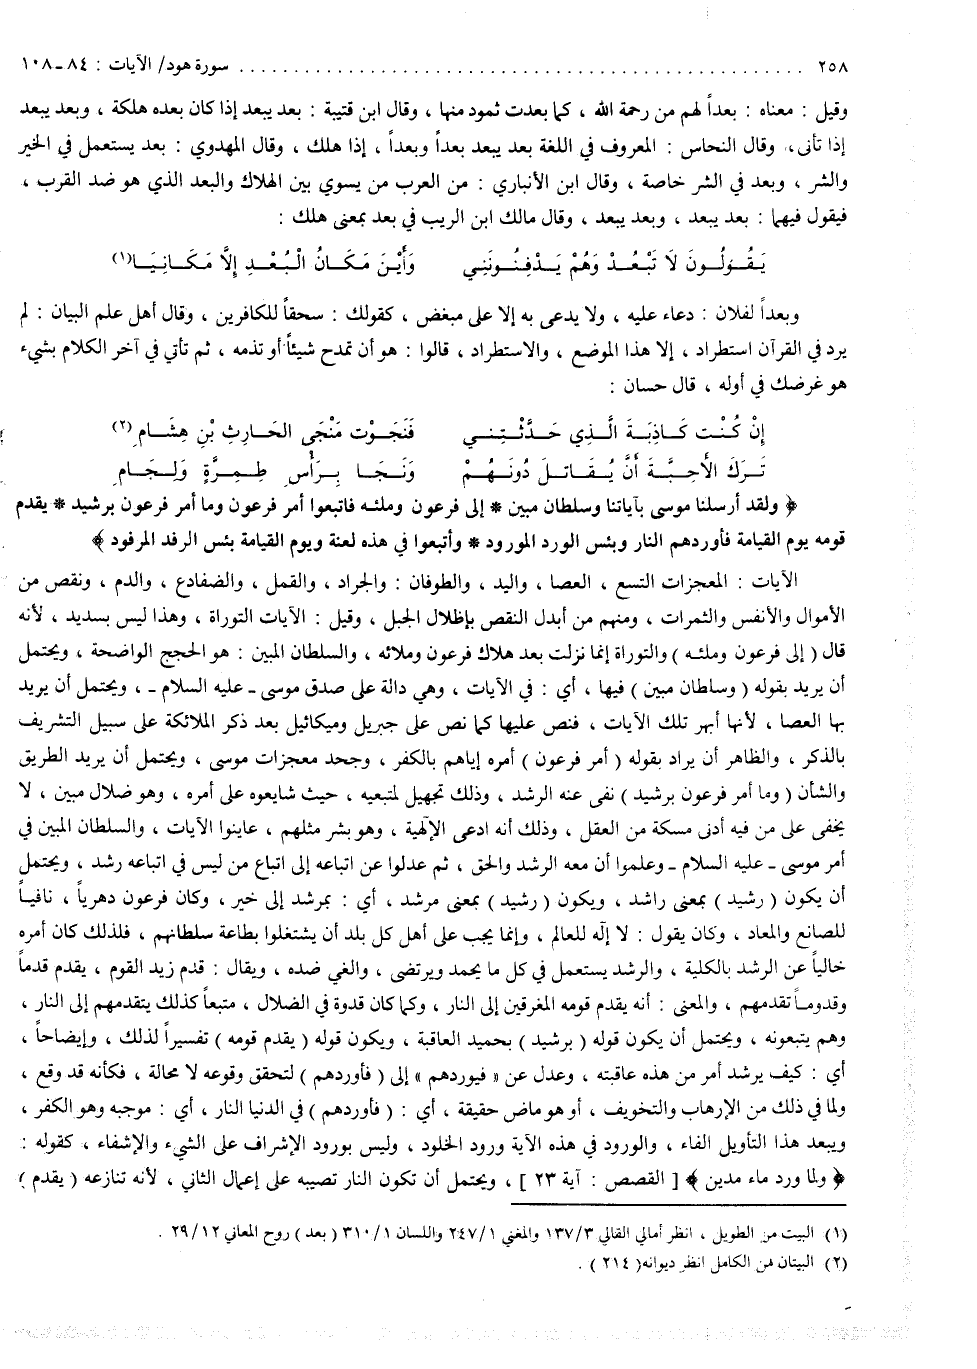 ٢٥٨ ................................................ سورة هود/ الآيات : ٨٤ـ١٠٨
وقيل : معناه : بعداً لهم من رحمة الله ، كما بعدت ثمود منها ، وقال ابن قتيبة : بعد يبعد إذا كان بعده هلكة ، وبعد يبعد
إذا تأنى ، وقال النحاس : المعروف في اللغة بعد يبعد بعداً وبعداً ، إذا هلك ، وقال المهدوي : بعد يستعمل في الخير
والشر ، وبعد في الشر خاصة ، وقال ابن الأنباري : من العرب من يسوي بين الهلاك والبعد الذي هو ضد القرب ،
فيقول فيهما : بعد يبعد ، وبعد يبعد ، وقال مالك ابن الريب في بعد بمعنى هلك :
يَقُـولُـونَ لَا تَبْعُـدْ وَهُمْ يَـدْفِنُـونَنِي    وَأَيْنَ مَكَـانُ الْبُعْـدِ إِلَّا مَكَـانِيَـا(١)
وبعداً لفلان : دعاء عليه ، ولا يدعى به إلا على مبغض ، كقولك : سحقاً للكافرين ، وقال أهل علم البيان : لم
يرد في القرآن استطراد ، إلا هذا الموضع ، والاستطراد ، قالوا : هو أن تمدح شيئاً أو تذمه ، ثم تأتي في آخر الكلام بشيء
هو غرضك في أوله ، قال حسان :
إِنْ كُنْتِ كَـاذِبَـةَ الَّـذِي حَدَّثْتِـنِي    فَنَجَـوْتِ مَنْجَى الحَـارِثِ بْنِ هِشَـامِ(٢)
تَـرَكَ الأَحِبَّـةَ أَنْ يُقَـاتِـلَ دُونَهُـمْ    وَنَجَـا بِـرَأْسِ طِمِـرَّةٍ وَلِجَـامِ
﴿ ولقد أرسلنا موسى بآياتنا وسلطان مبين * إلى فرعون وملئـه فاتبعوا أمر فرعون وما أمر فرعون برشيد * يقدم
قومه يوم القيامة فأوردهم النار وبئس الورد المورود * وأتبعوا في هذه لعنة ويوم القيامة بئس الرفد المرفود ﴾
الآيات : المعجزات التسع ، العصا ، واليد ، والطوفان : والجراد ، والقمل ، والضفادع ، والدم ، ونقص من
الأموال والأنفس والثمرات ، ومنهم من أبدل النقص بإظلال الجبل ، وقيل : الآيات التوراة ، وهذا ليس بسديد ، لأنه
قال ( إلى فرعون وملئـه ) والتوراة إنما نزلت بعد هلاك فرعون وملائه ، والسلطان المبين : هو الحجج الواضحة ، ويحتمل
أن يريد بقوله ( وسلطان مبين ) فيها ، أي : في الآيات ، وهي دالة على صدق موسى ـ عليه السلام ـ ، ويحتمل أن يريد
بها العصا ، لأنها أبهر تلك الآيات ، فنص عليها كما نص على جبريل وميكائيل بعد ذكر الملائكة على سبيل التشريف
بالذكر ، والظاهر أن يراد بقوله ( أمر فرعون ) أمره إياهم بالكفر ، وجحد معجزات موسى ، ويحتمل أن يريد الطريق
والشأن ( وما أمر فرعون برشيد ) نفى عنه الرشد ، وذلك تجهيل لمتبعيه ، حيث شايعوه على أمره ، وهو ضلال مبين ، لا
يخفى على من فيه أدنى مسكة من العقل ، وذلك أنه ادعى الإلٰهية ، وهو بشر مثلهم ، عاينوا الآيات ، والسلطان المبين في
أمر موسى ـ عليه السلام ـ وعلموا أن معه الرشد والحق ، ثم عدلوا عن اتباعه إلى اتباع من ليس في اتباعه رشد ، ويحتمل
أن يكون ( رشيد ) بمعنى راشد ، ويكون ( رشيد ) بمعنى مرشد ، أي : بمرشد إلى خير ، وكان فرعون دهرياً ، نافيـاً
للصانع والمعاد ، وكان يقول : لا إلٰه للعالم ، وإنما يجب على أهل كل بلد أن يشتغلوا بطاعة سلطانهم ، فلذلك كان أمره
خالياً عن الرشد بالكلية ، والرشد يستعمل في كل ما يحمد ويرتضى ، والغي ضده ، ويقال : قدم زيد القوم ، يقدم قدماً
وقدومـاً تقدمهم ، والمعنى : أنه يقدم قومه المغرقين إلى النار ، وكما كان قدوة في الضلال ، متبعاً كذلك يتقدمهم إلى النار ،
وهم يتبعونه ، ويحتمل أن يكون قوله ( برشيد ) بحميد العاقبة ، ويكون قوله ( يقدم قومه ) تفسيراً لذلك ، وإيضاحاً ،
أي : كيف يرشد أمر من هذه عاقبته ، وعدل عن « فيوردهم » إلى ( فأوردهم ) لتحقق وقوعه لا محالة ، فكأنه قد وقع ،
ولما في ذلك من الإرهاب والتخويف ، أو هو ماض حقيقة ، أي : ( فأوردهم ) في الدنيا النار ، أي : موجبه وهو الكفر ،
ويبعد هذا التأويل الفاء ، والورود في هذه الآية ورود الخلود ، وليس بورود الإشراف على الشيء والإشفاء ، كقوله :
﴿ ولما ورد ماء مدين ﴾ [ القصص : آية ٢٣ ] ، ويحتمل أن تكون النار تصيبه على إعمال الثاني ، لأنه تنازعه ( يقدم )
(١) البيت من الطويل ، انظر أمالي القالي ١٣٧/٣ والمغني ٢٤٧/١ واللسان ٣١٠/١ ( بعد ) روح المعاني ٢٩/١٢ .
(٢) البيتان من الكامل انظر ديوانه( ٢١٤ ) .